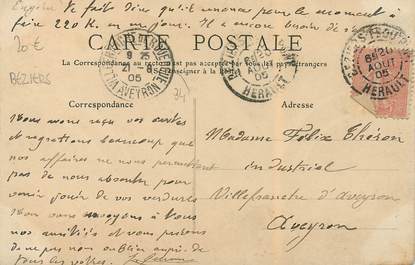 Eugène te fait dire qu'il renonce pour le moment à
faire 220 K. en un jour. Il a encore besoin de
20€
CARTE POSTALE
La Correspondance au recto est pas acceptée par tous les pays étrangers
renseigner à la
BÉZIERS
9 25
21 - 8
05
AVEYRON
BÉZIERS
AOUT
05
HERAULT
BÉZIERS
AOUT
05
HERAULT
34
Correspondance
Adresse
Nous avons reçu vos cartes
et regrettons beaucoup que
nos affaires ne nous permettent
pas de nous absenter pour
venir jouir de vos verdures
Nous vous envoyons à tous
nos amitiés et vous prions
de ne pas nous oublier auprès de
tous les vôtres.
Madame Félix Théron
industriel
Villefranche d'Aveyron
Aveyron